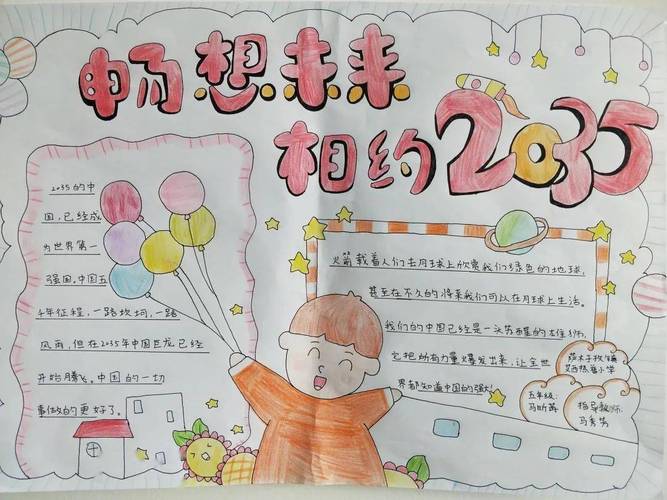 畅想未来
相约2035
2035的中
国,已经成
为世界第一
强国。中国五
千年征程,一路坎坷,一路
风雨,但在2035年中国巨龙已经
开始腾飞。中国的一切
事做的更好了。
火箭载着人们去月球上欣赏我们绿色的地球,
甚至在不久的将来我们可以在月球上生活。
我们的中国已经是一头苏醒的雄狮,
它把所有力量爆发出来,让全世
界都知道中国的强大!
小学
五年级:
指导教师:
马秀芳